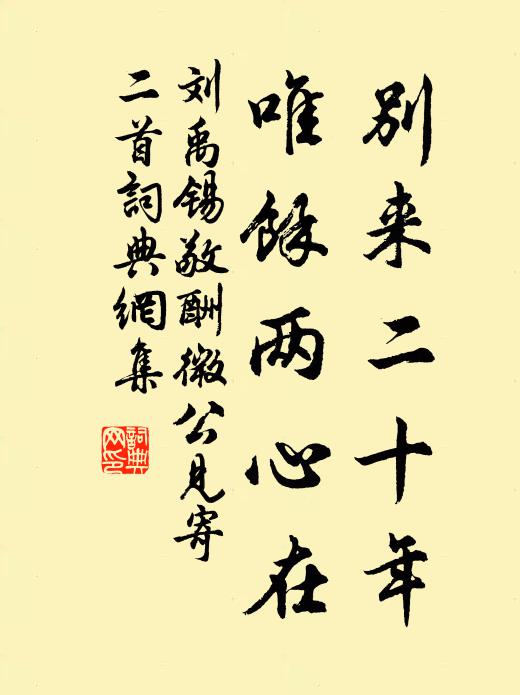 别来二十年
唯餘两心在
刘禹锡敬酬微公見寄
二首詞典網集
詞典
网印